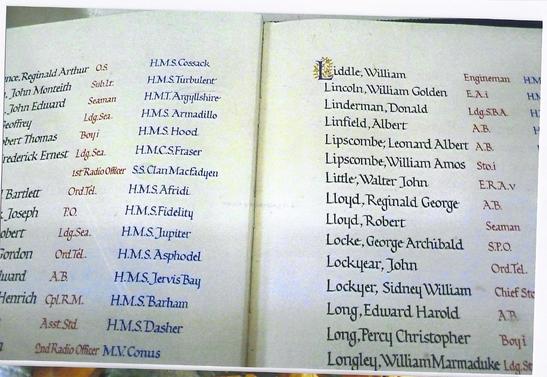 Reginald Arthur O.S. H.M.S. Cossack
John Monteith Sub.Lt. H.M.S. Turbulent
John Edward Seaman H.M.T. Argyllshire
Geoffrey Ldg.Sea. H.M.S. Armadillo
Robert Thomas Boy i H.M.S. Hood
Frederick Ernest Ldg.Sea. H.M.C.S. Fraser
1st Radio Officer S.S. Clan Macfadyen
Bartlett Ord.Tel. H.M.S. Afridi
Joseph P.O. H.M.S. Fidelity
Ldg.Sea. H.M.S. Jupiter
Gordon Ord.Tel. H.M.S. Asphodel
A.B. H.M.S. Jervis Bay
Henrich Cpl.R.M. H.M.S. Barham
Asst.Std. H.M.S. Dasher
2nd Radio Officer M.V. Conus
Liddle, William Engineman H.M
Lincoln, William Golden E.A.i H.M
Linderman, Donald Ldg.S.B.A.
Linfield, Albert A.B.
Lipscombe, Leonard Albert A.B.
Lipscombe, William Amos Sto.i
Little, Walter John E.R.A.v
Lloyd, Reginald George A.B.
Lloyd, Robert Seaman
Locke, George Archibald S.P.O.
Lockyear, John Ord.Tel.
Lockyer, Sidney William Chief Sto
Long, Edward Harold A.B.
Long, Percy Christopher Boy i
Longley, William Marmaduke Ldg.